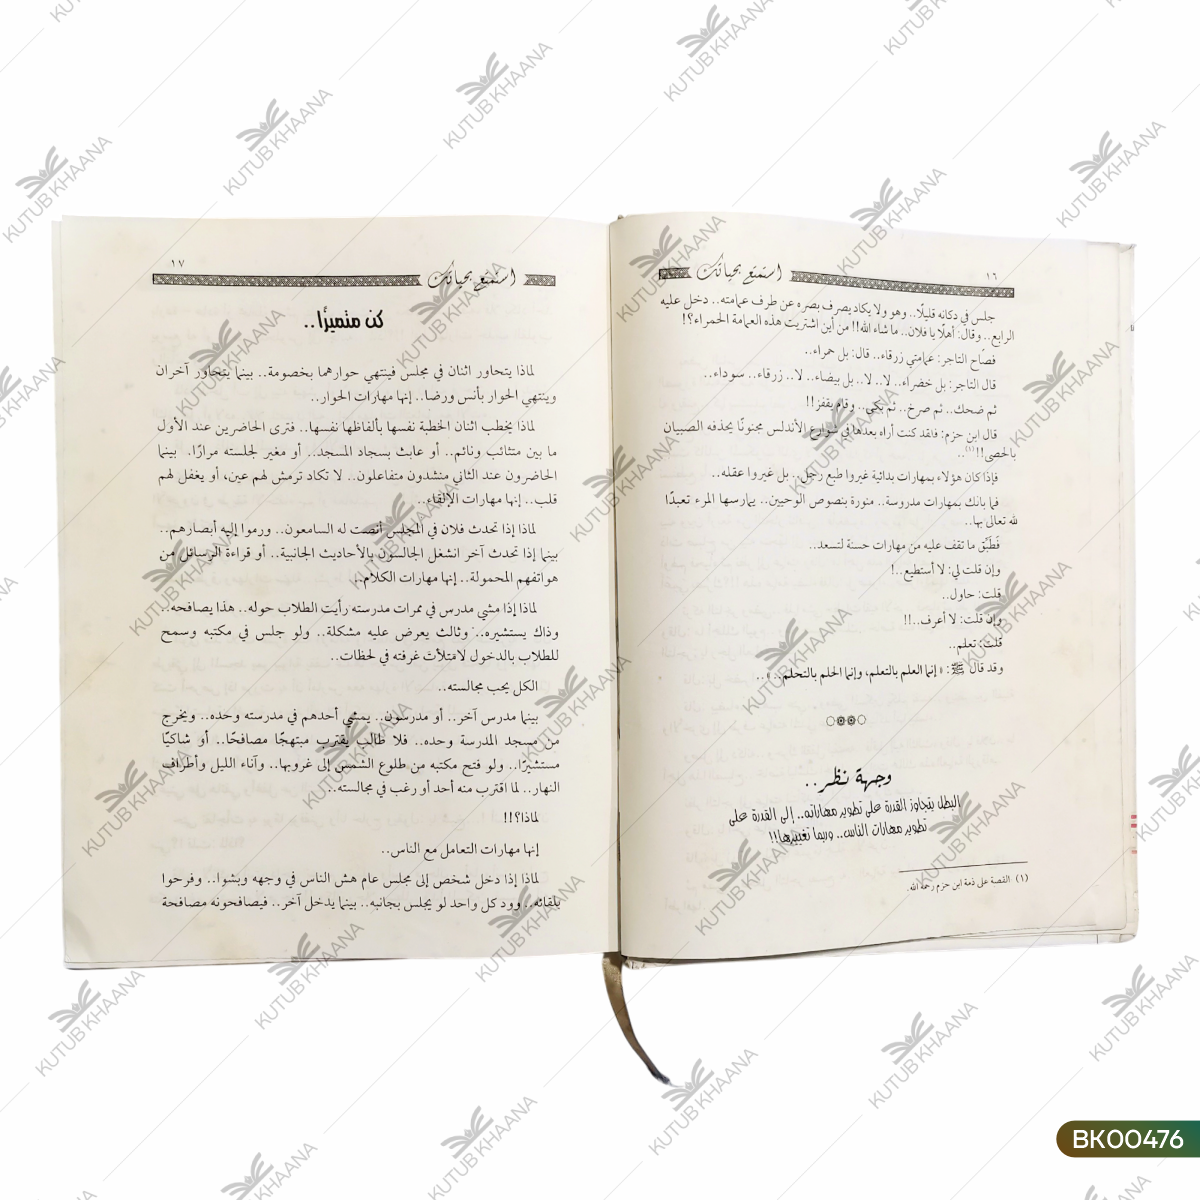 ١٦
استمتع بحياتك
جلس في دكانه قليلًا.. وهو لا يكاد يصرف بصره عن طرف عمامته.. دخل عليه
الرابع.. وقال: أهلًا يا فلان.. ما شاء الله!! من أين اشتريت هذه العمامة الحمراء؟!
فصاح التاجر: عمامتي زرقاء.. قال: بل حمراء..
قال التاجر: بل خضراء.. لا.. لا.. بل بيضاء.. لا.. زرقاء.. سوداء..
ثم ضحك.. ثم صرخ.. ثم بكى.. وقام يقفز!!
قال ابن حزم: فلقد كنت أراه بعدها في شوارع الأندلس مجنونًا يحذفه الصبيان
بالحصى!!(١)..
فإذا كان هؤلاء بمهارات بدائية غيروا طبع رجل.. بل غيروا عقله..
فما بالك بمهارات مدروسة.. منورة بنصوص الوحيين.. يمارسها المرء تعبدًا
لله تعالى بها..
فَطَبِّق ما تقف عليه من مهارات حسنة لتسعد..
وإن قلت لي: لا أستطيع..!
قلت: حاول..
وإن قلت: لا أعرف..!!
قلت: تعلم..
وقد قال ﷺ: «إنما العلم بالتعلم، وإنما الحلم بالتحلم..»..
وجهة نظر..
البطل يتجاوز القدرة على تطوير مهاراته.. إلى القدرة على
تطوير مهارات الناس.. وربما تغييرها!!
(١) القصة على ذمة ابن حزم رحمه الله.
١٧
استمتع بحياتك
كن متميزًا..
لماذا يتحاور اثنان في مجلس فينتهي حوارهما بخصومة.. بينما يتحاور آخران
وينتهي الحوار بأنس ورضا.. إنها مهارات الحوار..
لماذا يخطب اثنان الخطبة نفسها بألفاظها نفسها.. فترى الحاضرين عند الأول
ما بين متثائب ونائم.. أو عابث بسجاد المسجد.. أو مغير لجلسته مرارًا. بينما
الحاضرون عند الثاني منشدون متفاعلون.. لا تكاد ترمش لهم عين، أو يغفل لهم
قلب.. إنها مهارات الإلقاء..
لماذا إذا تحدث فلان في المجلس أنصت له السامعون.. ورموا إليه أبصارهم..
بينما إذا تحدث آخر انشغل الجالسون بالأحاديث الجانبية.. أو قراءة الرسائل من
هواتفهم المحمولة.. إنها مهارات الكلام..
لماذا إذا مشي مدرس في ممرات مدرسته رأيت الطلاب حوله.. هذا يصافحه..
وذاك يستشيره.. وثالث يعرض عليه مشكلة.. ولو جلس في مكتبه وسمح
للطلاب بالدخول لامتلأت غرفته في لحظات..
الكل يحب مجالسته..
بينما مدرس آخر.. أو مدرسون.. يمشي أحدهم في مدرسته وحده.. ويخرج
من مسجد المدرسة وحده.. فلا طالب يقترب مبتهجًا مصافحًا.. أو شاكيًا
مستشيرًا.. ولو فتح مكتبه من طلوع الشمس إلى غروبها.. وآناء الليل وأطراف
النهار.. لما اقترب منه أحد أو رغب في مجالسته..
لماذا؟!!
إنها مهارات التعامل مع الناس..
لماذا إذا دخل شخص إلى مجلس عام هش الناس في وجهه وبشوا.. وفرحوا
بلقائه.. وود كل واحد لو يجلس بجانبه.. بينما يدخل آخر.. فيصافحونه مصافحة
KUTUB KHAANA
BK00476